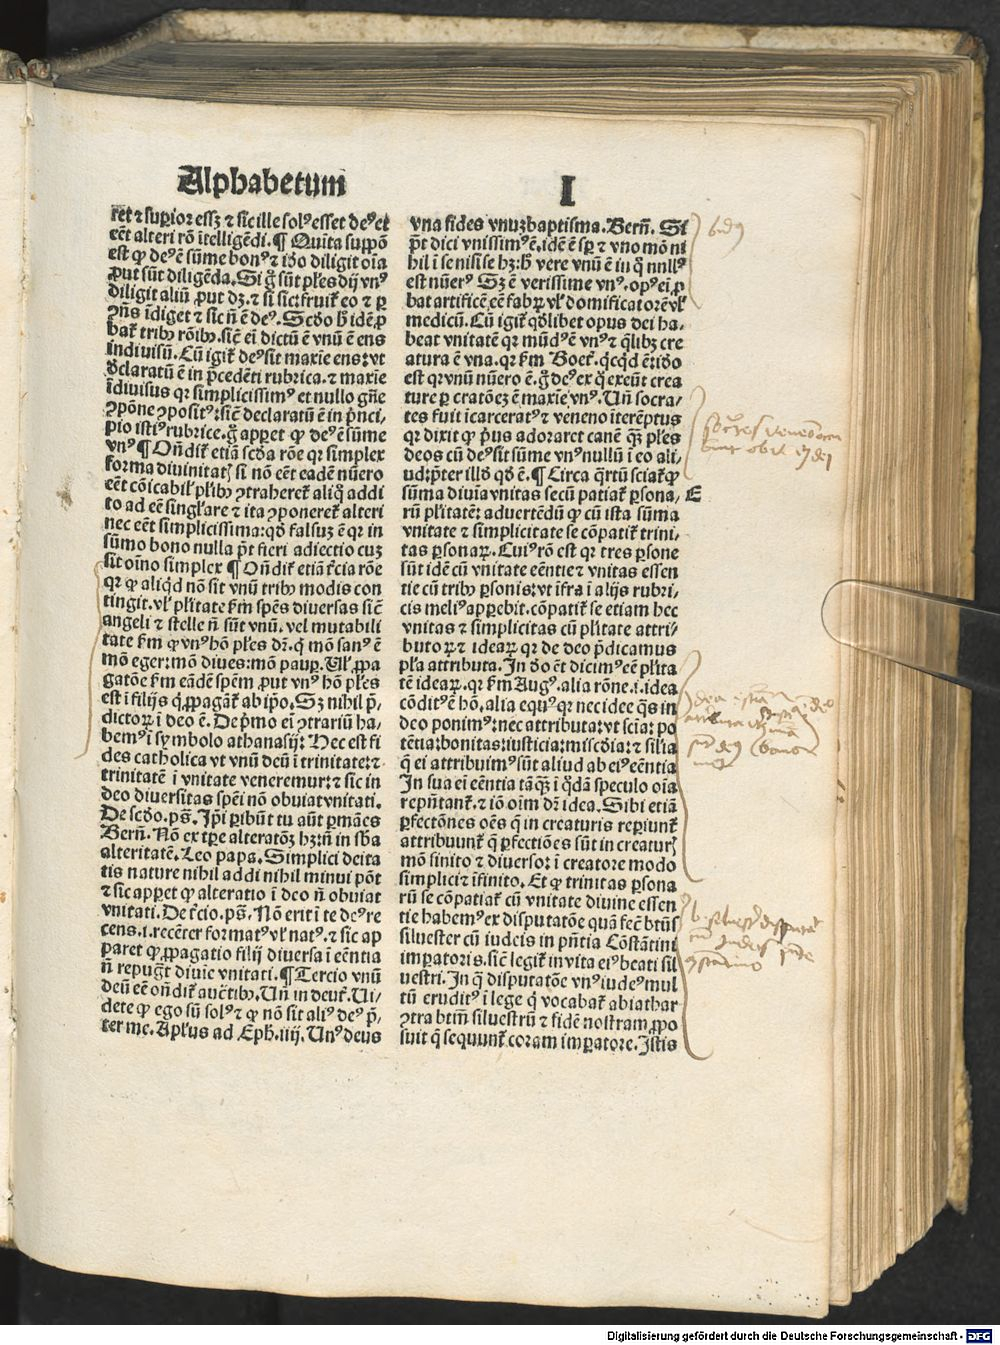 Alphabetum
I
ret ⁊ superior essꝫ ⁊ sic ille solꝰ esset deꝰ et
eēt alteri rō ītelligēdi. ¶ Quīta suppō
est ꝙ deꝰ ē sūme bonꝰ ⁊ iō diligit oīa
ꝓut sūt diligēda. Si g̊ sūt pl̄es dij vnꝰ
diligit aliū ꝓut dꝫ. ⁊ si sic: fruit̄ eo ⁊ ꝑ
ꝯn̄s īdiget ⁊ sic n̄ ē deꝰ. Scd̄o h̄ idē ꝓ
bat̄ tribꝰ rōibꝰ. sic̄ ei dictū ē vnū ē ens
indiuisū. Cū igit̄ deꝰ sit maxīe ens: vt
declaratū ē in p̄cedēti rubrica. ⁊ maxīe
īdiuisus qꝛ simplicissimꝰ et nullo gn̄e
ꝯpōne ꝯpositꝰ: sic̄ declaratū ē in p̄nci,
pio istiꝰ rubrice. g̊ apꝑet ꝙ deꝰ ē sūme
vnꝰ ¶ On̄dit̄ etiā scd̄a rōe qꝛ simplex
forma diuinitatꝭ si nō eēt eadē nūero
eēt cōicabil̓ pl̄ibꝰ ꝯtraheret̄ aliq̊ addi
to ad eē singl̓are ⁊ ita ꝯponeret̄ alteri
nec eēt simplicissima: qd̓ falsuꝫ ē qꝛ in
sūmo bono nulla p̄t fieri adiectio cuꝫ
sit oīno simplex ¶ On̄dit̄ etiā t̓cia rōe
qꝛ ꝙ aliqd̓ nō sit vnū tribꝰ modis con
tingit. vl̓ pl̓itate fm̄ spēs diuersas sic̄
angeli ⁊ stelle n̄ sūt vnū. vel mutabili
tate fm̄ ꝙ vnꝰ hō pl̄es dr̄. q̓ mō sanꝰ ē
mō eger: mō diues: mō pauꝑ. Vl̓ ꝓpa
gatōe fm̄ eādē spēm ꝓut vnꝰ hō pl̄es
est ī filijs q̓ ꝓpagāt̄ ab ip̄o. Sꝫ nihil p̄,
dictoꝝ ī deo ē. De p̄mo ei ꝯtrariū ha,
bemꝰ ī symbolo athanasij: Hec est fi
des catholica vt vnū deū ī trinitate: ⁊
trinitatē ī vnitate veneremur: ⁊ sic in
deo diuersitas spēi nō obuiat vnitati.
De scd̄o. ps̄. Ip̄i peribūt tu aūt ꝑmāes
Berñ. Nō ex tꝑe alteratōꝫ hꝫ: n̄ in sb̄a
alteritatē. Leo papa. Simplici deita
tis nature nihil addi nihil minui pōt
⁊ sic apꝑet ꝙ alteratio ī deo n̄ obuiat
vnitati. De t̓cio. ps̄. Nō erit ī te deꝰ re
cens. .i. recēter formatꝰ vl̓ natꝰ. ⁊ sic ap
paret ꝙ ꝓpagatio filij diuersa ī eēntia
n̄ repugt̄ diuīe vnitati. ¶ Tercio vnū
deū eē on̄dit̄ auct̄tibꝰ. Vn̄ in deut̓. Vi,
dete ꝙ ego sū solꝰ ⁊ ꝙ nō sit aliꝰ deꝰ p̄,
ter me. Apl̓us ad Eph. iiij. Vnꝰ deus
vna fides vnuꝫ baptisma. Berñ. Si
p̄t dici vnissimꝰ ē. idē ē sꝑ ⁊ vno mō ni
hil ī se nisi se hꝫ: h̓ vere vnū ē in q̊ nullꝰ
est nūerꝰ Sꝫ ē verissime vnꝰ. opꝰ ei ꝓ
bat artificē eē fabꝝ vl̓ domificatorē vl̓
medicū. Cū igit̄ qd̓libet opus dei ha,
beat vnitatē qꝛ mūdꝰ ē vnꝰ ⁊ q̓libꝫ cre
atura ē vna. qꝛ fm̄ Boet̄. qͥcqͥd ē: iō
est qꝛ vnū nūero ē. g̊ deꝰ ex q̊ exeūt crea
ture ꝑ cratōeꝫ ē maxīe vnꝰ. Vn̄ socra,
tes fuit icarceratꝰ ⁊ veneno īterēptus
qꝛ dixit ꝙ pꝰus adoraret canē qꝫ pl̄es
deos cū deꝰ sit sūme vnꝰ nullū ī eo ali,
ud: p̄ter illd̓ qd̓ ē. ¶ Circa q̓rtū sciat̄ ꝙ
E
sūma diuīa vnitas secū patiat̄ ꝑsona,
rū pl̓itatē: aduertēdū ꝙ cū ista sūma
vnitate ⁊ simplicitate se cōpatit̄ trini,
tas ꝑsonaꝝ. Cuiꝰ rō est qꝛ tres ꝑsone
sūt idē cū vnitate eēntie ⁊ vnitas essen
tie cū tribꝰ ꝑsonis: vt īfra ī alijs rubri,
cis meliꝰ apꝑebit. cōpatit̄ se etiam hec
vnitas ⁊ simplicitas cū pl̓itate attri,
butoꝝ ⁊ ideaꝝ qꝛ de deo p̄dicamus
pl̄a attributa. In deo eēt dicimꝰ eē pl̓ita
tē ideaꝝ. qꝛ fm̄ Augꝰ. alia rōne .i. idea
cōditꝰ ē hō. alia equꝰ qꝛ nec idee q̄s in
deo ponimꝰ: nec attributa: vt scīa: po
tētia: bonitas: iusticia: miscd̓ia: ⁊ sil̓ia
q̄ ei attribuimꝰ sūt aliud ab eiꝰ eēntia
In sua ei eēntia tāqꝫ ī q̊dā speculo oīa
repn̄tant̄ ⁊ iō oīm dr̄ idea. Sibi etiā
ꝑfectōnes oēs q̄ in creaturis reperiunt̄
attribuunt̄ q̄ ꝑfectiōes sūt in creaturꝭ
mō finito ⁊ diuerso: ī creatore modo
simplici ⁊ īfinito. Et ꝙ trinitas ꝑsona
rū se cōpatiat̄ cū vnitate diuine essen
tie habemꝰ ex disputatōe quā fec̄ btūs
siluester cū iudeis in pn̄tia Cōstātini
imꝑatoris. sic̄ legit̄ in vita eiꝰ beati sil
uestri. In q̄ disputatōe vnꝰ iudeꝰ mul
tū eruditꝰ ī lege q̓ vocabat̄ abiathar
ꝯtra btm̄ siluestrū ⁊ fidē nostram ꝓpo
suit q̄ sequunt̄ coram imꝑatore. Istis
Digitalisierung gefördert durch die Deutsche Forschungsgemeinschaft - DFG